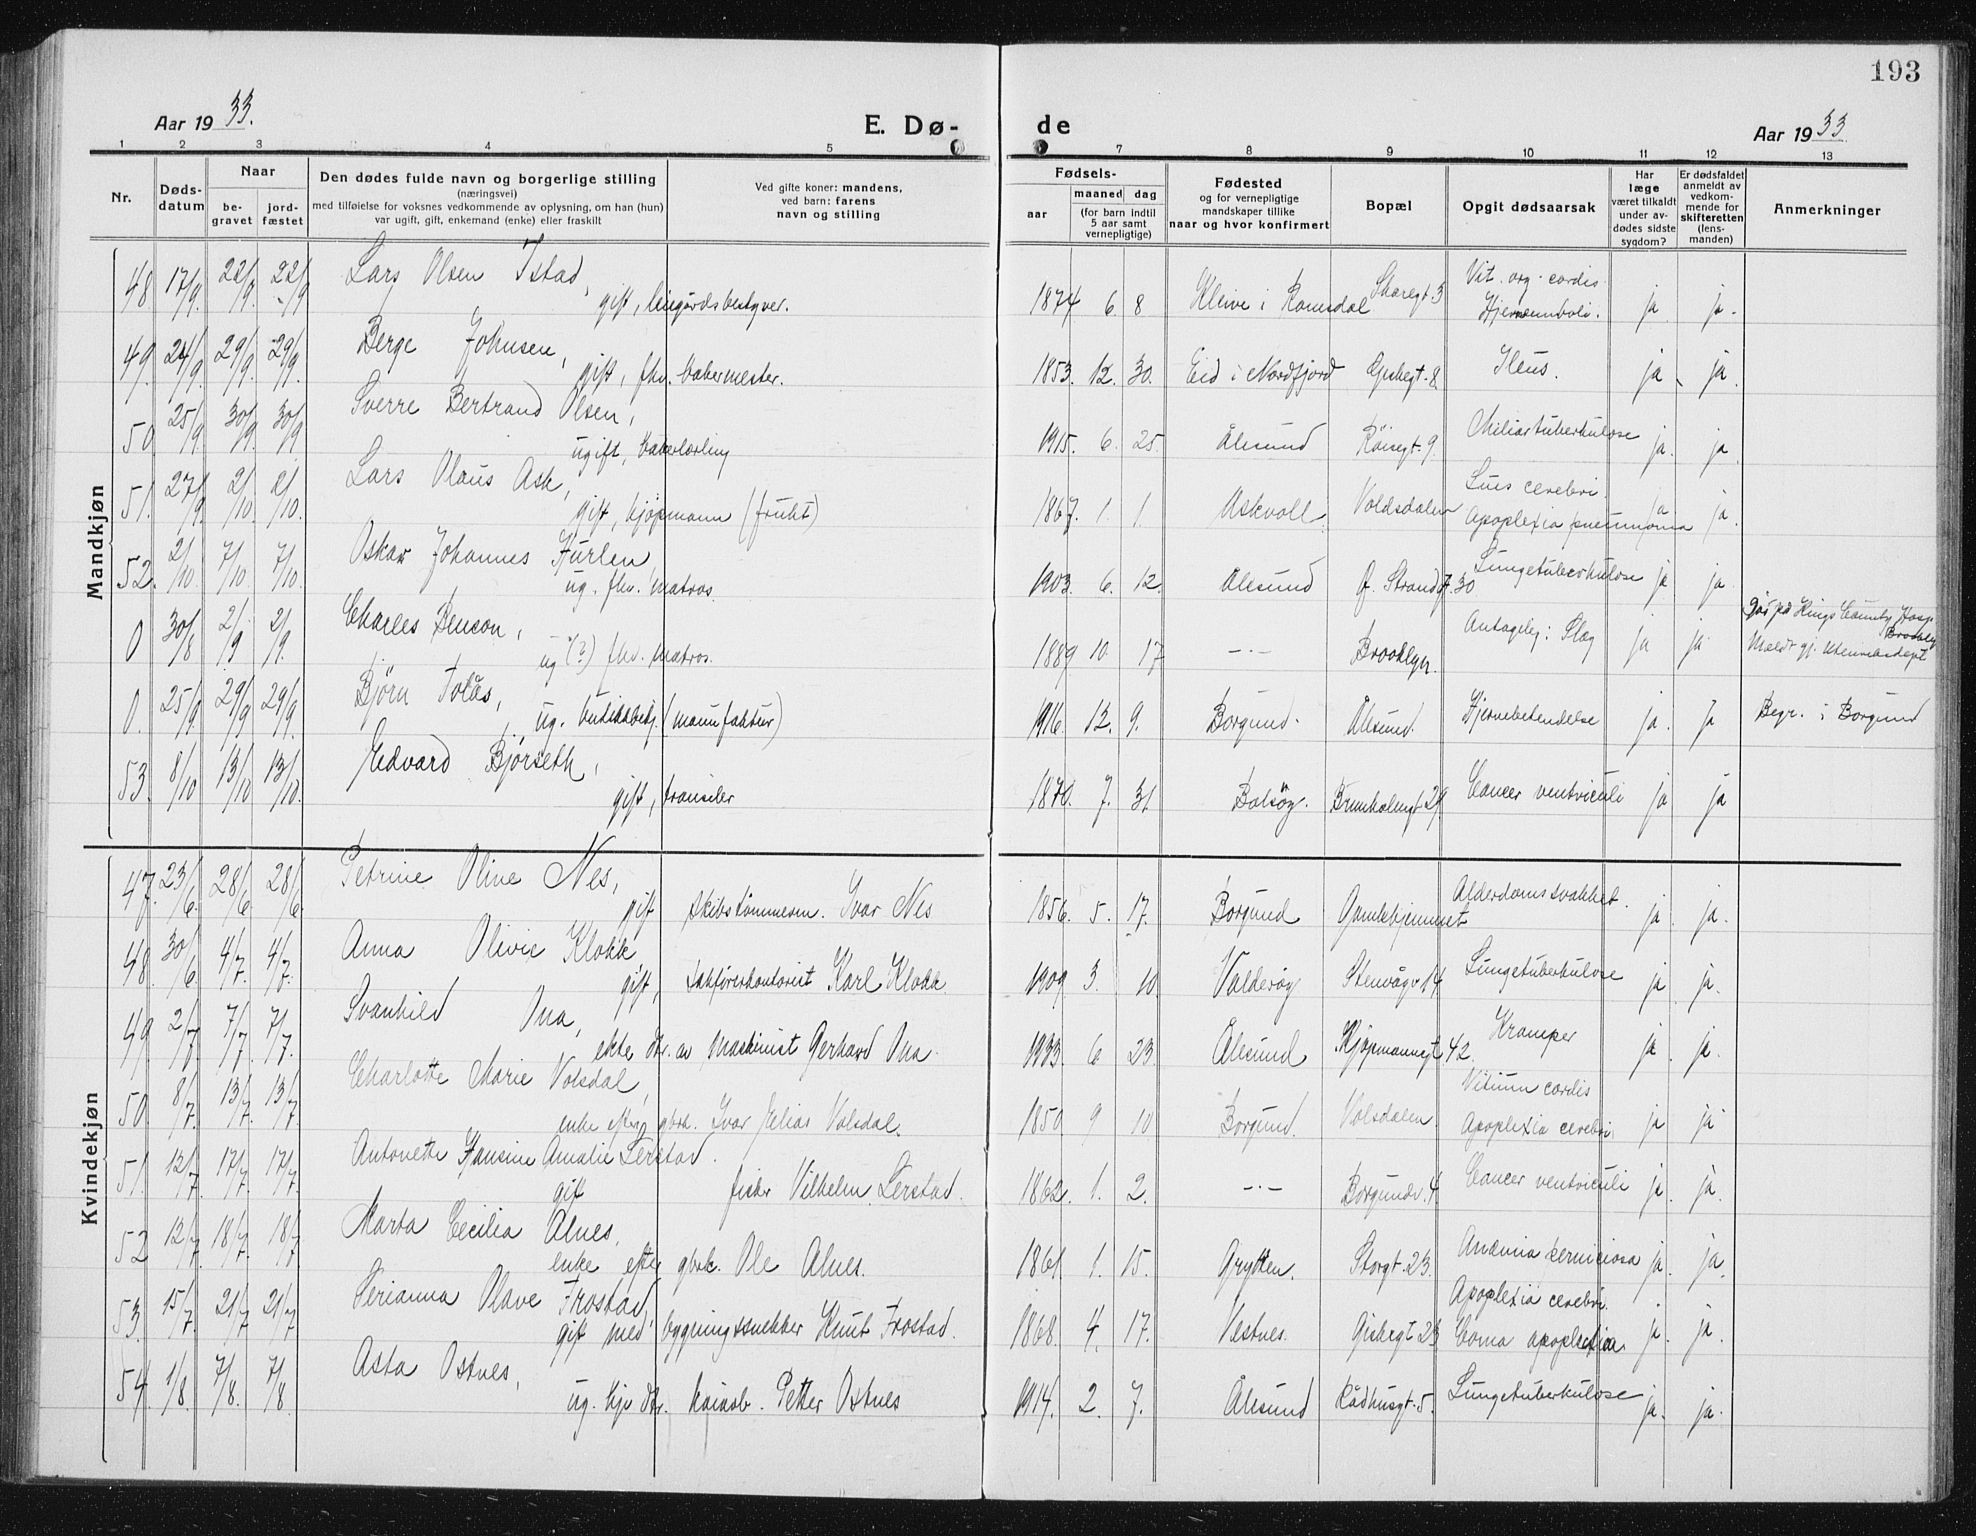 193
Aar 1933.
E. Dø-
de
Aar 1933
1 2 3 4 5 7 8 9 10 11 12 13
Nr.
Døds-
datum
Naar
be-
gravet
jord-
fæstet
Den dødes fulde navn og borgerlige stilling
(næringsvei)
med tilføielse for voksnes vedkommende av oplysning, om han (hun)
var ugift, gift, enkemand (enke) eller fraskilt
Ved gifte koner: mandens,
ved barn: farens
navn og stilling
Fødsels-
aar
maaned
dag
(for barn indtil
5 aar samt
vernepligtige)
Fødested
og for vernepligtige
mandskaper tillike
naar og hvor konfirmert
Bopæl
Opgit dødsaarsak
Har
læge
været tilkaldt
under av-
dødes sidste
sygdom?
Er dødsfaldet
anmeldt av
vedkom-
mende for
skifteretten
(lens-
manden)
Anmerkninger
Mandkjøn
48 17/9. 22/9 22/9 Lars Olsen Istad,
gift, leiegårdsbestyrer. 1874 6. 8 Kleive i Romsdal Skaregt. 3 Vit. org. cordis
Hjerneemboli. ja ja.
49. 24/9. 29/9. 29/9. Berge Johnsen,
gift, fhv. bakermester. 1853. 12. 30. Eid i Nordfjord Giskegt. 8 Ileus. ja ja.
50 25/9. 30/9. 30/9. Sverre Bertrand Olsen,
ugift, bakerlærling 1915. 6. 25. Ålesund Röisegt. 9. Miliærtuberkulose ja. ja.
51. 27/9. 2/10. 2/10. Lars Olaus Ask,
gift, kjøpmann (frukt) 1867. 1. 1. Askvoll Voldsdalen Lues cerebri.
Apoplexia pneumonia ja ja.
52. 2/10. 7/10. 7/10. Oskar Johannes Hurlen,
ug. fhv. matros. 1903. 6. 12. Ålesund Ø. Strandg. 30 Lungetuberkulose ja ja.
0 30/8 2/9 2/9. Charles Benson,
ug (?) fhv. matros. 1889 10. 17 -"- Brooklyn. Antagelig: Slag ja ja. Død på Kings County Hosp.
Brooklyn
Meldt gj. Utenriksdept
0. 25/9. 29/9 29/9. Bjørn Tolås,
ug. butikkbetj. (manufaktur) 1916. 12. 9. Borgund. Ålesund. Hjernebetendelse ja. ja Begr. i Borgund
53. 8/10 13/10 13/10. Edvard Bjørseth,
gift, fransiler 1870. 7. 31. Bolsöy. Brunholmgt 29. Cancer ventriculi ja ja
Kvindekjøn
47. 23/6. 28/6. 28/6. Petrine Oline Nes,
gift skibstömmerm. Ivar Nes 1856. 5. 17. Borgund Gamlehjemmet Alderdomssvakhet. ja. ja.
48. 30/6 4/7. 4/7. Anna Olivie Klokk
gift, sakførerkontorist Karl Klokk 1909 3. 10. Valderöy Stenvågv. 14 Lungetuberkulose ja. ja.
49 2/7 7/7. 7/7. Svanhild Ona,
ekte dtr. av Maskinist Gerhard Ona. 1933. 6 23. Ålesund Kjøpmannsgt 42. Kramper ja. ja.
50 8/7. 13/7. 13/7. Charlotte Marie Volsdal,
enke efter gbrk. Ivar Jelias Volsdal. 1850 9 10 Borgund. Volsdalen. Vitium cordis
Apoplexia cerebri. ja ja
51. 12/7. 17/7. 17/7. Antonette Hansine Amalie Lerstad.
gift fisker Vilhelm Lerstad. 1862. 1. 2. -"- Borgundv. 4. Cancer ventriculi ja. ja.
52 12/7. 18/7. 18/7. Marta Cecilia Alnes,
enke efter gbrk. Ole Alnes. 1861. 1. 15. Grytten. Storgt. 23. Anæmia perniciosa ja. ja.
53. 15/7. 21/7. 21/7. Serianna Olave Frostad,
gift med bygningssnekker Knut Frostad. 1868. 4. 17. Vestnes. Giskegt 23 Apoplexia cerebri.
Coma apoplectica. ja. ja.
54. 1/8. 7/8. 7/8. Asta Ostnes,
ug. hjv. dtr. kaiarb. Petter Ostnes 1914. 2. 7. Ålesund Rådhusgt. 5. Lungetuberkulose ja. ja.